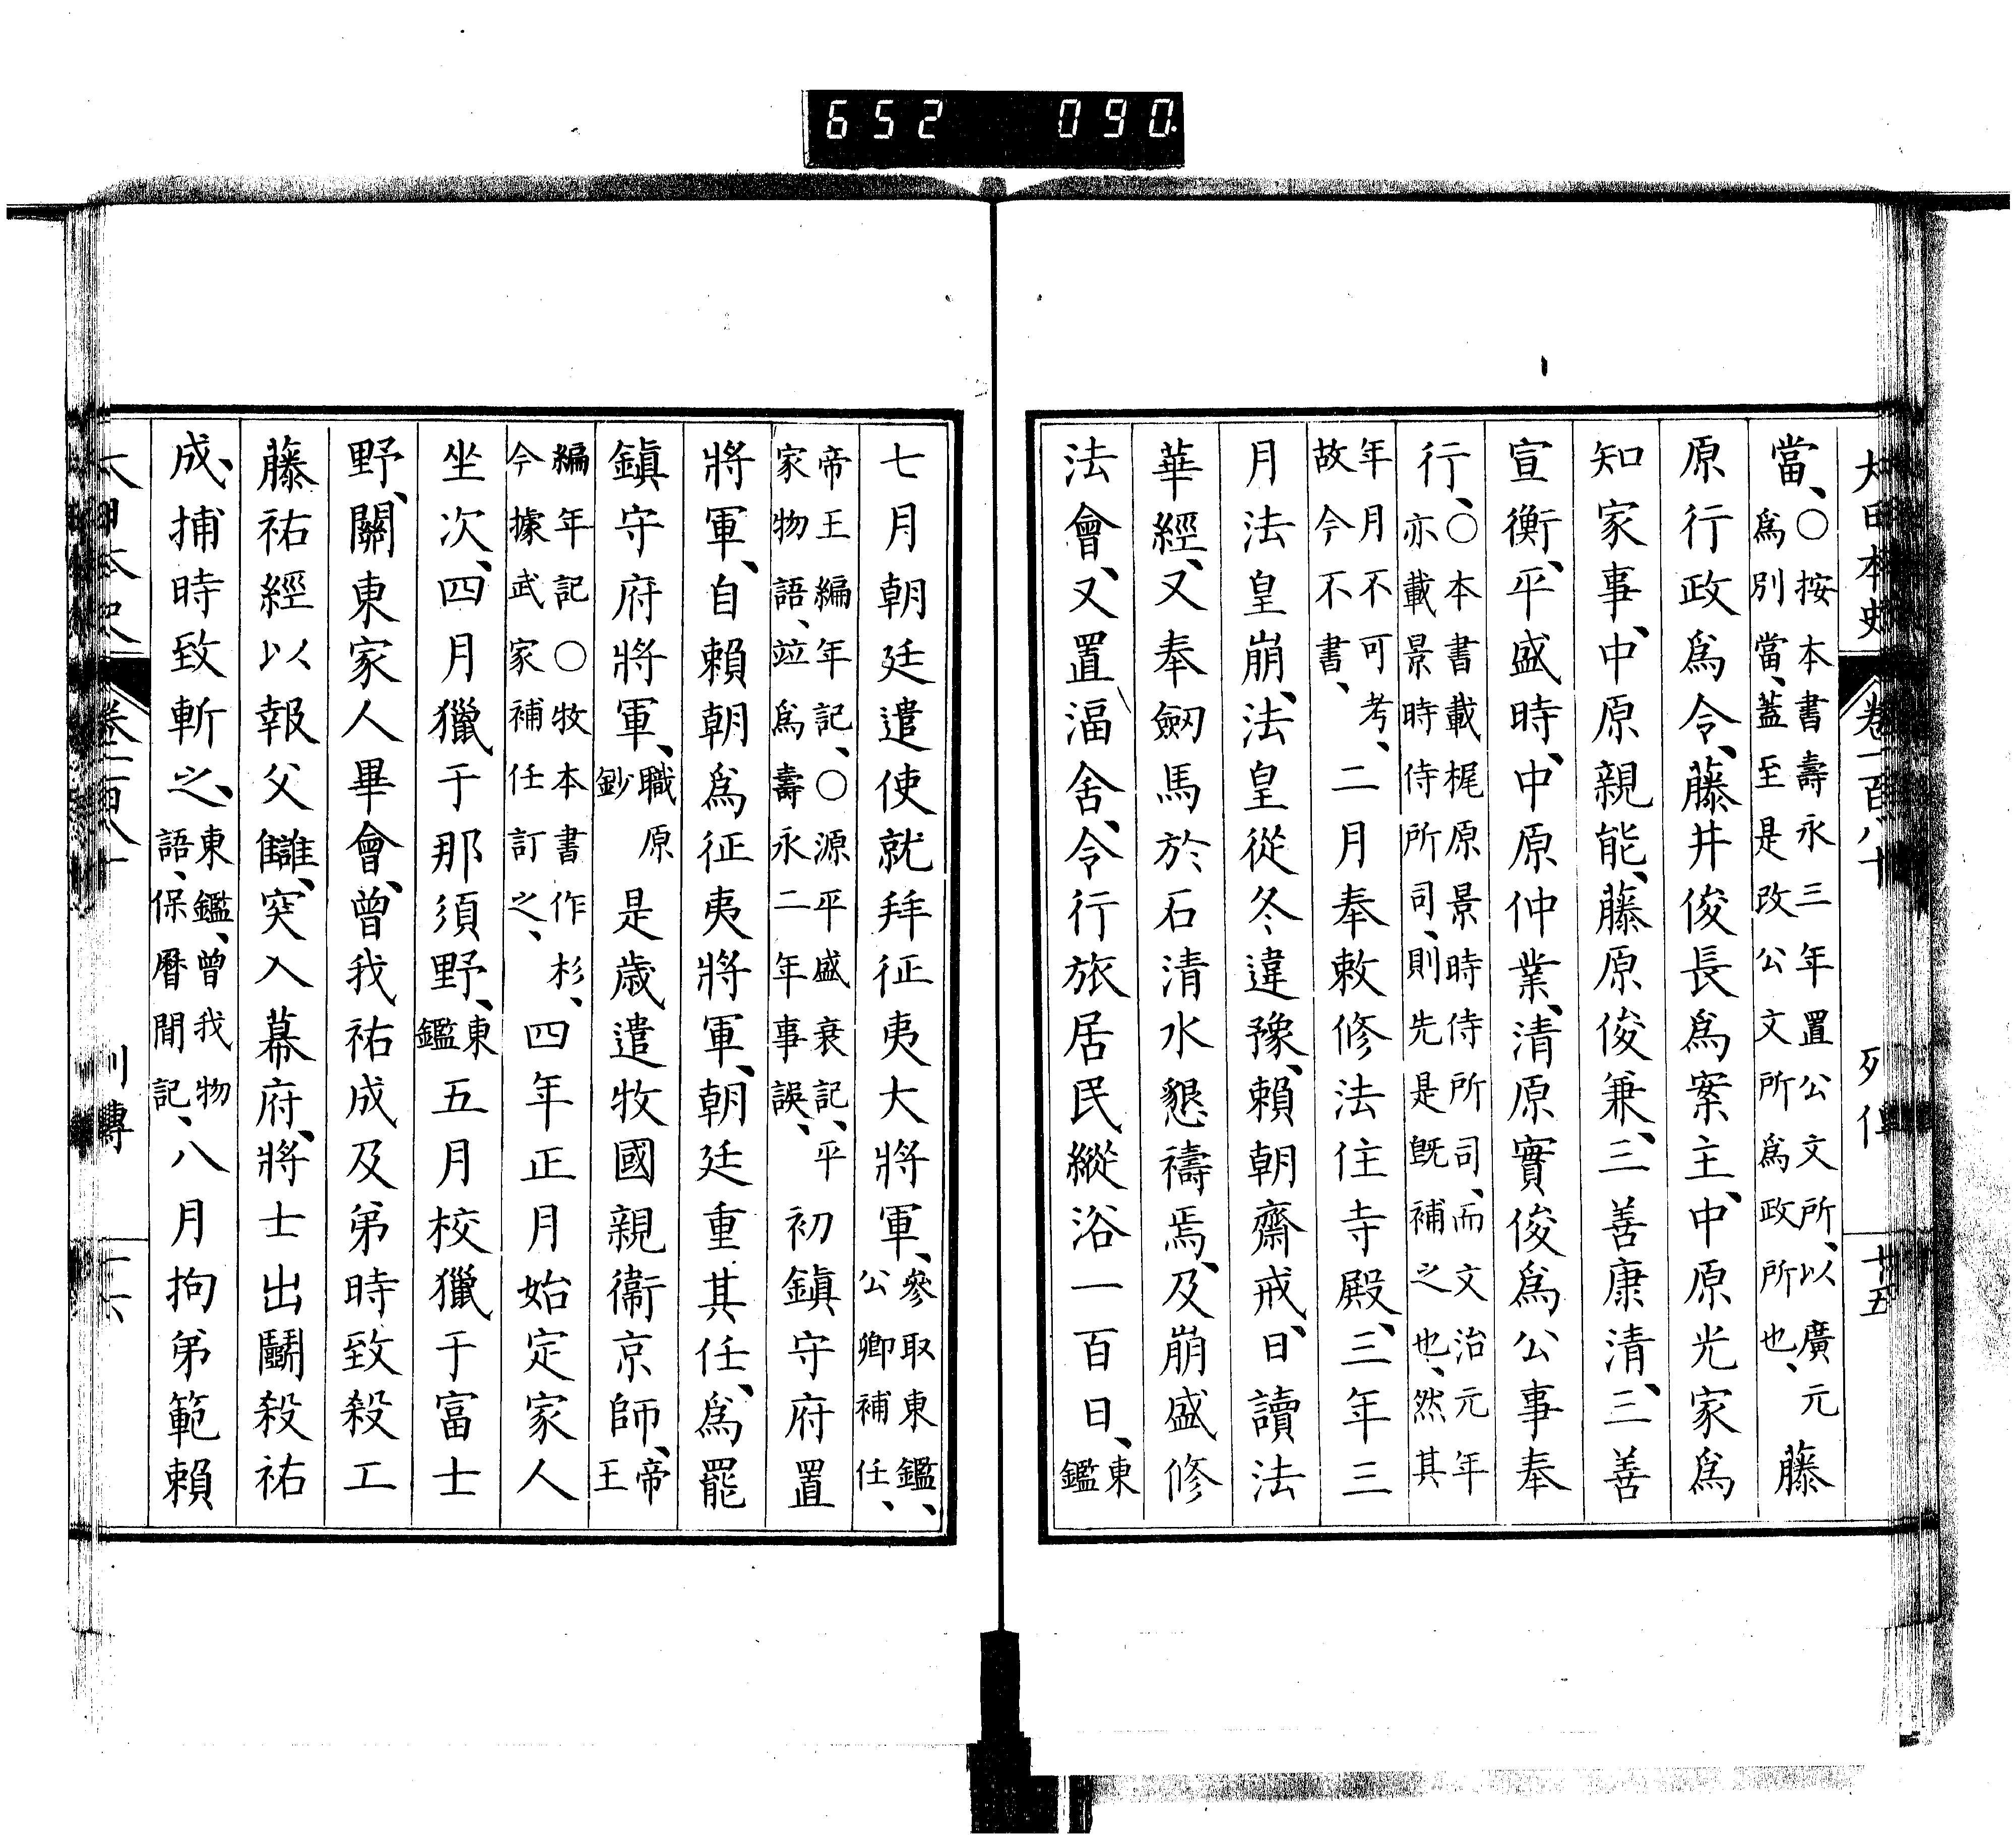 652 090
大日本史 卷一百八十 列傳 十五
當、○按本書壽永三年置公文所、以廣元爲別當、蓋至是改公文所爲政所也、藤
原行政爲令、藤井俊長爲案主、中原光家爲
知家事、中原親能、藤原俊兼、三善康清、三善
宣衡、平盛時、中原仲業、清原實俊爲公事奉
行、○本書載梶原景時侍所司、而文治元年亦載景時侍所司、則先是既補之也、然其
年月不可考、故今不書、二月奉敕修法住寺殿、三年三
月法皇崩、法皇從冬違豫、賴朝齋戒、日讀法
華經、又奉劔馬於石清水懇禱焉、及崩盛修
法會、又置湢舍、令行旅居民縱浴一百日、東鑑
七月朝廷遣使就拜征夷大將軍、參取東鑑、公卿補任、
帝王編年記、○源平盛衰記、平家物語、竝爲壽永二年事誤、初鎭守府置
將軍、自賴朝爲征夷將軍、朝廷重其任、爲罷
鎭守府將軍、職原鈔是歲遣牧國親衞京師、帝王
編年記○牧本書作杉、今據武家補任訂之、四年正月始定家人
坐次、四月獵于那須野、東鑑五月校獵于富士
野、關東家人畢會、曾我祐成及弟時致殺工
藤祐經以報父讎、突入幕府、將士出鬭殺祐
成、捕時致斬之、東鑑、曾我物語、保曆間記、八月拘弟範賴
大日本史 卷一百八十 列傳 十六